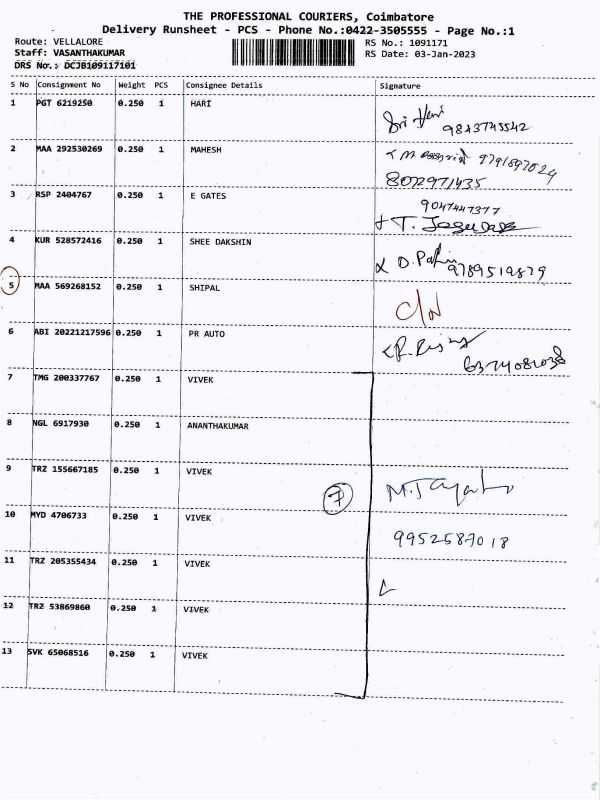 THE PROFESSIONAL COURIERS, Coimbatore
Delivery Runsheet - PCS - Phone No.:0422-3505555 - Page No.:1
Route: VELLALORE
Staff: VASANTHAKUMAR
DRS No.: DCJB109117101
RS No.: 1091171
RS Date: 03-Jan-2023
S No Consignment No Weight PCS Consignee Details Signature
1 PGT 6219250 0.250 1 HARI
9843745542
2 MAA 292530269 0.250 1 MAHESH
8072971435
3 RSP 2404767 0.250 1 E GATES
9047447377
4 KUR 528572416 0.250 1 SHEE DAKSHIN
9789519879
5 MAA 569268152 0.250 1 SHIPAL
6 ABI 20221217596 0.250 1 PR AUTO
7 TMG 200337767 0.250 1 VIVEK
8 NGL 6917930 0.250 1 ANANTHAKUMAR
9 TRZ 155667185 0.250 1 VIVEK
7
10 MYD 4706733 0.250 1 VIVEK
9952587018
11 TRZ 205355434 0.250 1 VIVEK
12 TRZ 53869860 0.250 1 VIVEK
13 SVK 65068516 0.250 1 VIVEK